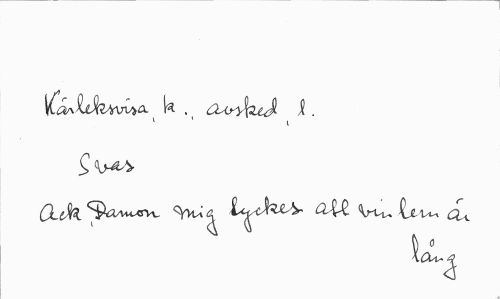 Kärleksvisa, k., avsked, l.
Svas
Ack, Damon mig tyckes att vintern är
lång